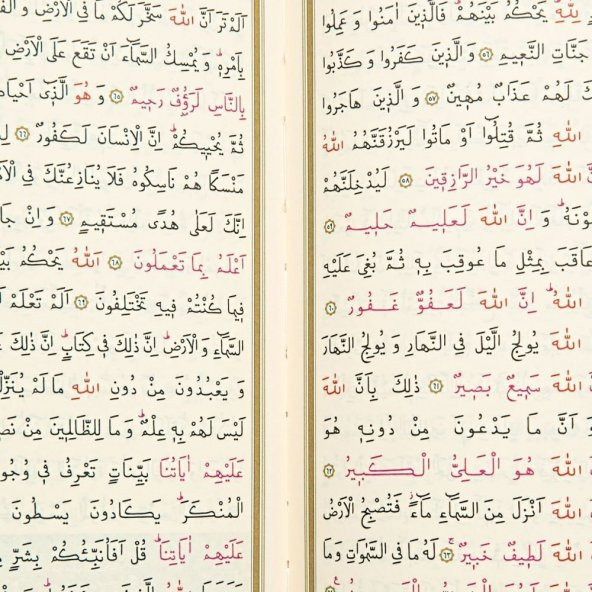 لِلّٰهِ يَحْكُمُ بَيْنَهُمْ فَالَّذ۪ينَ اٰمَنُوا وَعَمِلُوا
جَنَّاتِ النَّع۪يمِ ٥٦ وَالَّذ۪ينَ كَفَرُوا وَكَذَّبُوا
لَهُمْ عَذَابٌ مُه۪ينٌ ٥٧ وَالَّذ۪ينَ هَاجَرُوا
اللّٰهِ ثُمَّ قُتِلُٓوا اَوْ مَاتُوا لَيَرْزُقَنَّهُمُ اللّٰهُ
اللّٰهَ لَهُوَ خَيْرُ الرَّازِق۪ينَ ٥٨ لَيُدْخِلَنَّهُمْ
وَاِنَّ اللّٰهَ لَعَل۪يمٌ حَل۪يمٌ ٥٩
عَاقَبَ بِمِثْلِ مَا عُوقِبَ بِه۪ ثُمَّ بُغِيَ عَلَيْهِ
اللّٰهُۜ اِنَّ اللّٰهَ لَعَفُوٌّ غَفُورٌ ٦٠
اللّٰهَ يُولِجُ الَّيْلَ فِي النَّهَارِ وَيُولِجُ النَّهَارَ
اللّٰهَ سَم۪يعٌ بَص۪يرٌ ٦١ ذٰلِكَ بِاَنَّ اللّٰهَ
وَاَنَّ مَا يَدْعُونَ مِنْ دُونِه۪ هُوَ
اللّٰهَ هُوَ الْعَلِيُّ الْكَب۪يرُ ٦٢
اللّٰهَ اَنْزَلَ مِنَ السَّمَٓاءِ مَٓاءًۘ فَتُصْبِحُ الْاَرْضُ
اللّٰهَ لَط۪يفٌ خَب۪يرٌۚ ٦٣ لَهُ مَا فِي السَّمٰوَاتِ وَمَا
اَلَمْ تَرَ اَنَّ اللّٰهَ سَخَّرَ لَكُمْ مَا فِي الْاَرْضِ
بِاَمْرِه۪ۜ وَيُمْسِكُ السَّمَٓاءَ اَنْ تَقَعَ عَلَى الْاَرْضِ
بِالنَّاسِ لَرَؤُ۫فٌ رَح۪يمٌ ٦٥ وَهُوَ الَّذ۪ٓي
ثُمَّ يُحْي۪يكُمْۜ اِنَّ الْاِنْسَانَ لَكَفُورٌ ٦٦
مَنْسَكًا هُمْ نَاسِكُوهُ فَلَا يُنَازِعُنَّكَ فِي
اِنَّكَ لَعَلٰى هُدًى مُسْتَق۪يمٍ ٦٧ وَاِنْ
اَعْلَمُ بِمَا تَعْمَلُونَ ٦٨ اَللّٰهُ يَحْكُمُ
ف۪يمَا كُنْتُمْ ف۪يهِ تَخْتَلِفُونَ ٦٩ اَلَمْ تَعْلَمْ
السَّمَٓاءِ وَالْاَرْضِۜ اِنَّ ذٰلِكَ ف۪ي كِتَابٍۜ اِنَّ ذٰلِكَ
وَيَعْبُدُونَ مِنْ دُونِ اللّٰهِ مَا لَمْ يُنَزِّلْ
لَيْسَ لَهُمْ بِه۪ عِلْمٌۜ وَمَا لِلظَّالِم۪ينَ مِنْ
عَلَيْهِمْ اٰيَاتُنَا بَيِّنَاتٍ تَعْرِفُ ف۪ي
الْمُنْكَرَۜ يَكَادُونَ يَسْطُونَ
عَلَيْهِمْ اٰيَاتِنَاۜ قُلْ اَفَاُنَبِّئُكُمْ بِشَرٍّ